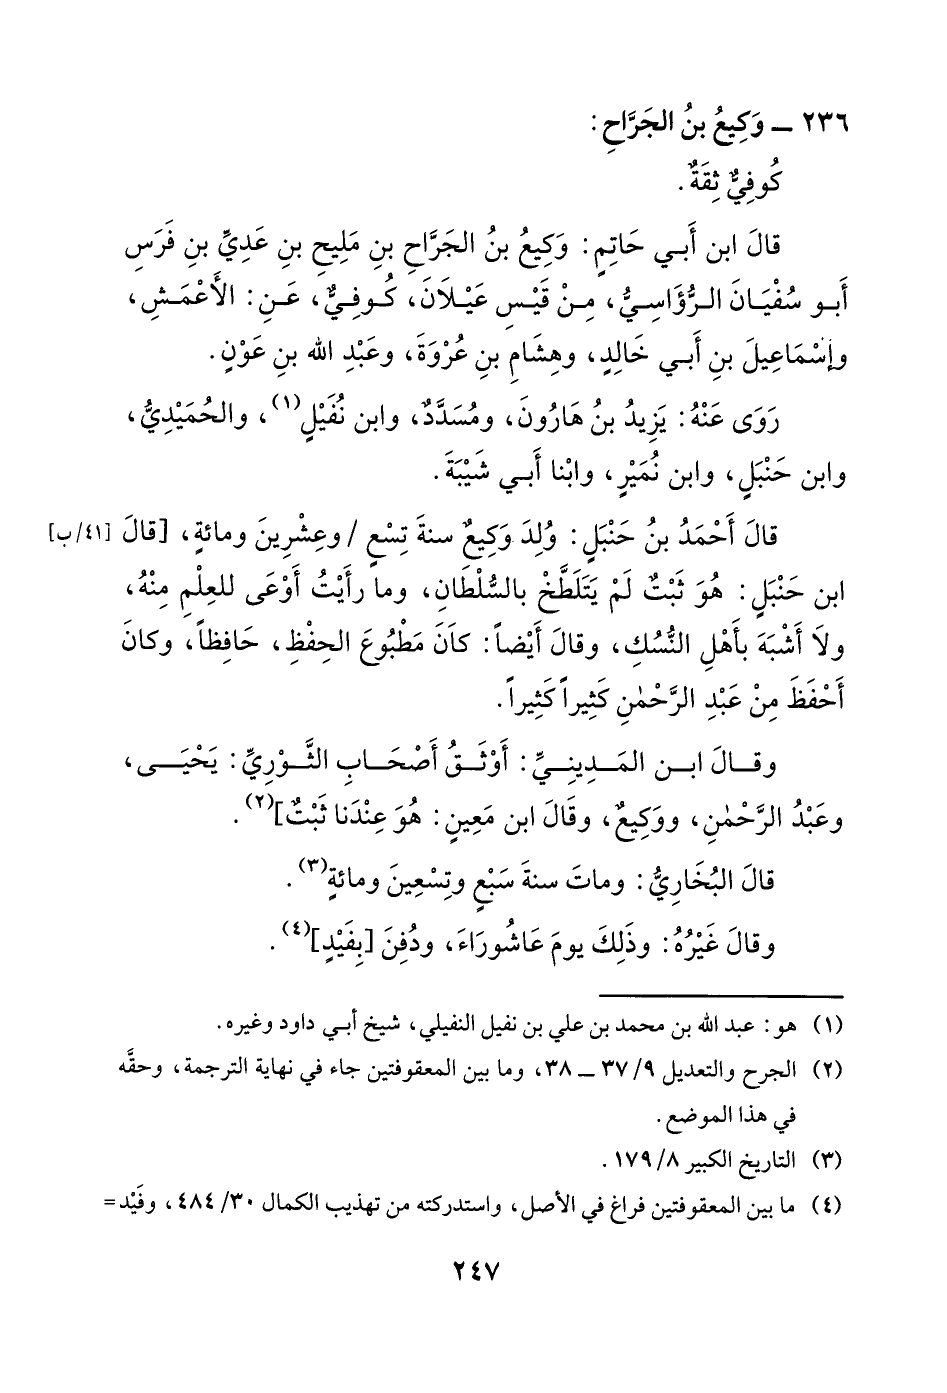 ٢٣٦ ـ وَكِيعُ بنُ الجَرَّاحِ :
كُوفِيٌّ ثِقَةٌ .
قالَ ابن أَبي حَاتِمٍ : وَكِيعُ بنُ الجَرَّاحِ بنِ مَلِيحِ بنِ عَدِيِّ بنِ فَرَسِ
أَبو سُفْيَانَ الرُّؤَاسِيُّ، مِنْ قَيْسِ عَيْلاَنَ، كُوفِيٌّ، عَنِ : الأَعْمَشِ،
وإسْمَاعِيلَ بنِ أَبي خَالِدٍ، وهِشَامِ بنِ عُرْوَةَ، وعَبْدِ الله بنِ عَوْنٍ.
رَوَى عَنْهُ : يَزِيدُ بنُ هَارُونَ، ومُسَدَّدٌ، وابن نُفَيْلٍ(١)، والحُمَيْدِيُّ،
وابن حَنْبَلٍ، وابن نُمَيْرٍ، وابْنا أَبي شَيْبَةَ .
قالَ أَحْمَدُ بنُ حَنْبَلٍ : وُلِدَ وَكِيعٌ سنةَ تِسْعٍ / وعِشْرِينَ ومائةٍ، [قالَ [٤١/ب]
ابن حَنْبَلٍ : هُوَ ثَبْتٌ لَمْ يَتَلَطَّخْ بالسُّلْطَانِ، وما رأَيْتُ أَوْعَى للعِلْمِ مِنْهُ،
ولاَ أَشْبَهَ بأَهْلِ النُّسُكِ، وقالَ أَيْضاً : كاَنَ مَطْبُوعَ الحِفْظِ، حَافِظاً، وكانَ
أَحْفَظَ مِنْ عَبْدِ الرَّحْمٰنِ كَثِيراً كَثِيراً .
وقالَ ابن المَدِينِيِّ : أَوْثَقُ أَصْحَابِ الثَّوْرِيِّ : يَحْيَى،
وعَبْدُ الرَّحْمٰنِ، ووَكِيعٌ، وقَالَ ابن مَعِينٍ : هُوَ عِنْدَنا ثَبْتٌ](٢) .
قالَ البُخَارِيُّ : وماتَ سنةَ سَبْعٍ وتِسْعِينَ ومائةٍ(٣) .
وقالَ غَيْرُهُ : وذَلِكَ يومَ عَاشُورَاءَ، ودُفِنَ [بِفَيْدٍ](٤) .
(١) هو : عبد الله بن محمد بن علي بن نفيل النفيلي، شيخ أبي داود وغيره .
(٢) الجرح والتعديل ٩/ ٣٧ ـ ٣٨، وما بين المعقوفتين جاء في نهاية الترجمة، وحقَّه
في هذا الموضع .
(٣) التاريخ الكبير ٨/ ١٧٩ .
(٤) ما بين المعقوفتين فراغ في الأصل، واستدركته من تهذيب الكمال ٣٠/ ٤٨٤، وفَيْد =
٢٤٧